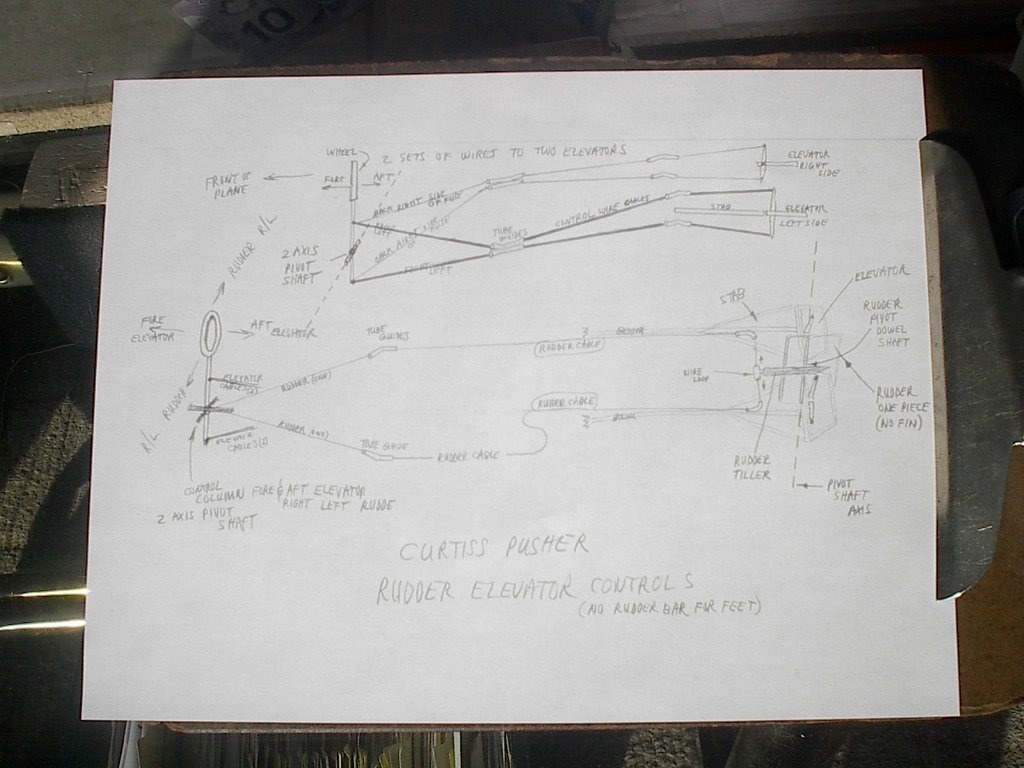 10
WHEEL
2 SETS OF WIRES TO TWO ELEVATORS
FRONT OF
PLANE
FORE
AFT
ELEVATOR
RIGHT
SIDE
BACK RIGHT SIDE
CONTROL WIRE CABLES
STAB
ELEVATOR
LEFT SIDE
TUBE
GUIDES
FRONT LEFT
2 AXIS
PIVOT
SHAFT
RUDDER R/L
FORE
ELEVATOR
AFT ELEVATOR
TUBE
GUIDES
RUDDER CABLE
BOOM
STAB
ELEVATOR
RUDDER
PIVOT
DOWEL
SHAFT
WIRE
LOOP
ELEVATOR
CABLES (2)
RUDDER (ONE)
RUDDER CABLE
RUDDER
ONE PIECE
(NO FIN)
R/L RUDDER
RUDDER (ONE)
ELEVATOR
CABLES (2)
TUBE GUIDE
RUDDER CABLE
RUDDER
TILLER
PIVOT
SHAFT
AXIS
CONTROL
COLUMN FORE & AFT ELEVATOR
RIGHT LEFT RUDDE
2 AXIS PIVOT
SHAFT
CURTISS PUSHER
RUDDER ELEVATOR CONTROLS
(NO RUDDER BAR FOR FEET)